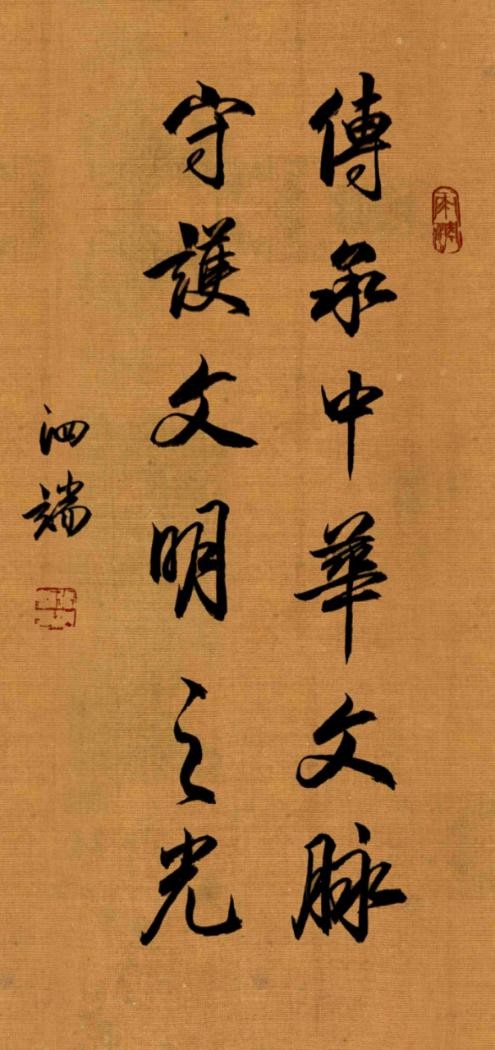 傳承中華文脉
守護文明之光
泗端